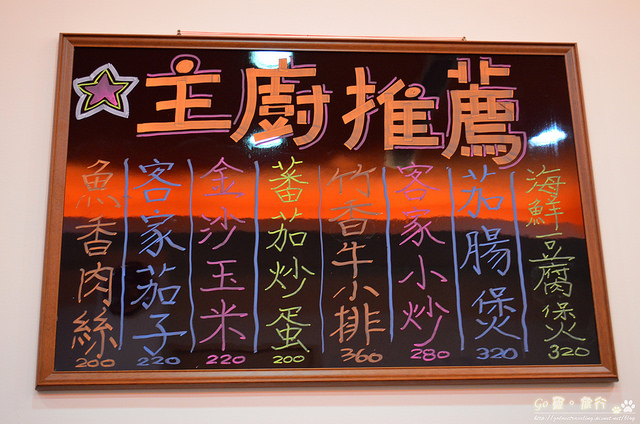 主廚推薦
海鮮豆腐煲 320
茄腸煲 320
客家小炒 280
竹香牛小排 360
蕃茄炒蛋 200
金沙玉米 220
客家茄子 220
魚香肉絲 200